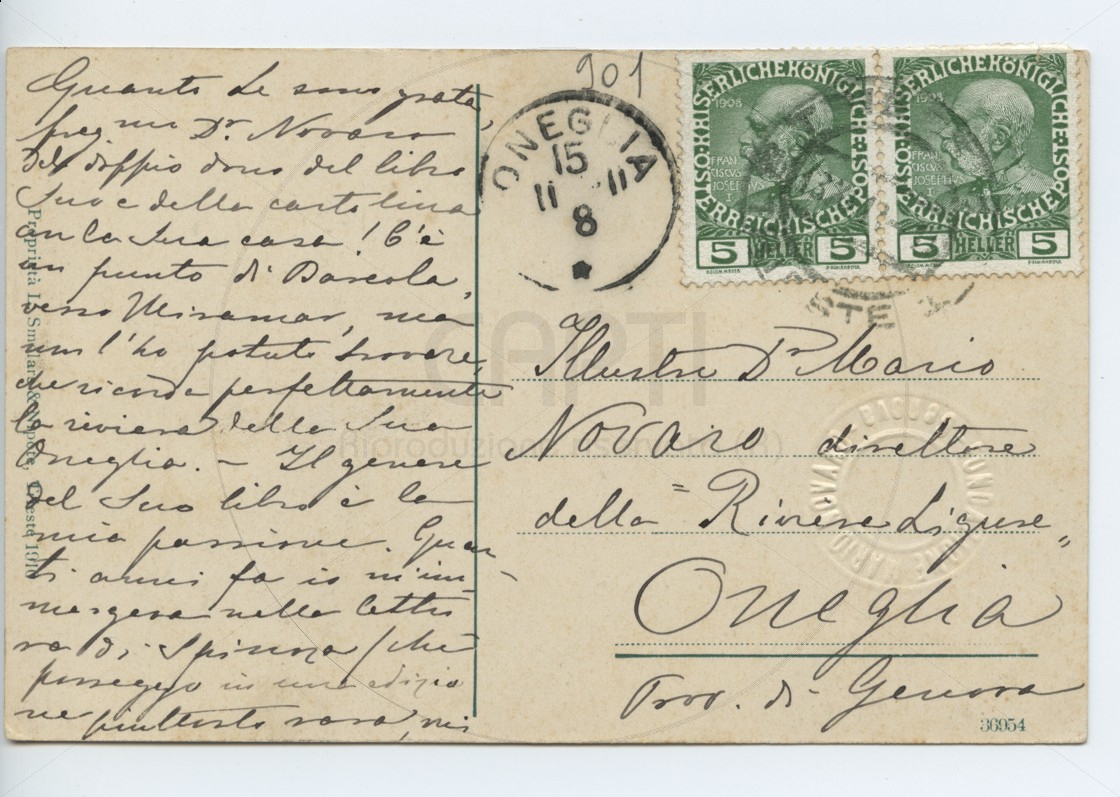 Quanto Le sono grata,
preg mo Dr. Novaro
del doppio dono del libro
Suo e della cartolina
con la Sua casa! C'è
un punto di Barcola,
verso Miramar, ma
non l'ho potuto trovare,
che ricorda perfettamente
la riviera della Sua
Oneglia. – Il genere
del Suo libro è la
mia passione. Quan-
ti anni fa io m'im
mergeva nella lettu
ra di Spinoza (che
posseggo in una edizio
ne piuttosto rara, mi
Proprietà L. Smollars & Nipote, Trieste 1910
901
ONEGLIA
15
11 11
8
KAISERLICHE KÖNIGLICHE ÖSTERREICHISCHE POST
1908
FRAN
CISCVS
JOSEPHVS
I
5 HELLER 5
KAISERLICHE KÖNIGLICHE ÖSTERREICHISCHE POST
1908
FRAN
CISCVS
JOSEPHVS
I
5 HELLER 5
Illustre Dr Mario
Novaro direttore
della "Riviera Ligure"
Oneglia
Prov. di Genova
36954
CAPTI